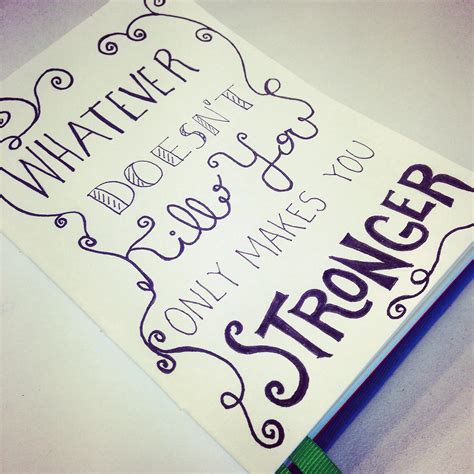 WHATEVER
DOESN'T
Kills You
ONLY MAKES YOU
STRONGER